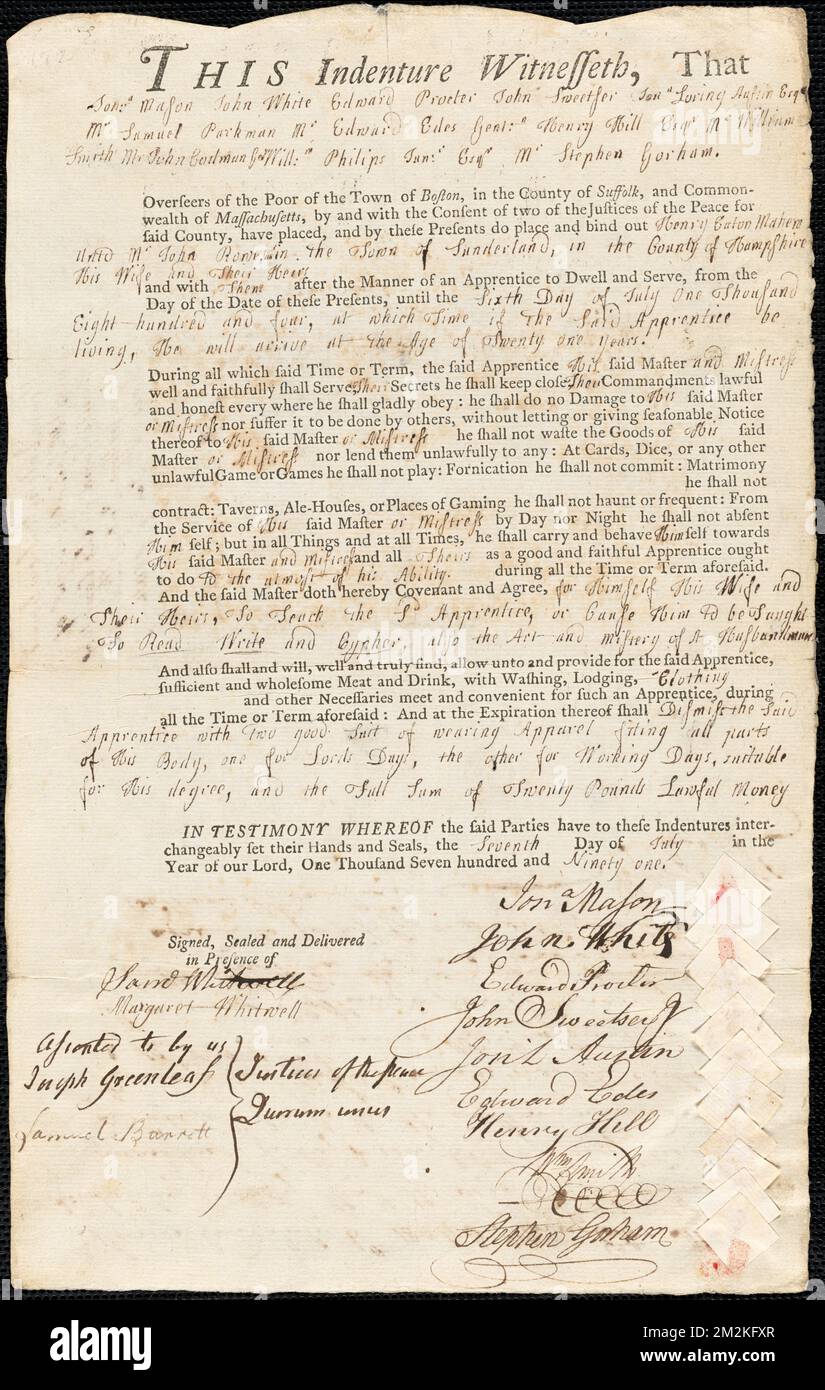 THIS Indenture Witnesseth, That
Jon.ª Mason John White Edward Procter John Sweetser Jon.ª Loring Austin Esqrs
Mr Samuel Parkman Mr Edward Edes Gent.n Henry Hill Esqr Mr William
Smith Mr John Codman Will.m Philips Jun.r Esqr Mr Stephen Gorham.
Overseers of the Poor of the Town of Boston, in the County of Suffolk, and Common-
wealth of Massachusetts, by and with the Consent of two of the Justices of the Peace for
said County, have placed, and by these Presents do place and bind out Henry Eaton Mahew
unto Mr John in the Town of Sunderland, in the County of Hampshire
His Wife and Their Heirs
and with Them after the Manner of an Apprentice to Dwell and Serve, from the
Day of the Date of these Presents, until the Sixth Day of July One Thousand
Eight hundred and four, at which Time if the Said Apprentice be
living, He will arrive at the Age of Twenty one years.
During all which said Time or Term, the said Apprentice His said Master and Mistress
well and faithfully shall Serve, Their Secrets he shall keep close Their Commandments lawful
and honest every where he shall gladly obey : he shall do no Damage to His said Master
or Mistress nor suffer it to be done by others, without letting or giving seasonable Notice
thereof to His said Master or Mistress he shall not waste the Goods of His said
Master or Mistress nor lend them unlawfully to any : At Cards, Dice, or any other
unlawful Game or Games he shall not play: Fornication he shall not commit : Matrimony
he shall not
contract: Taverns, Ale-Houses, or Places of Gaming he shall not haunt or frequent: From
the Service of His said Master or Mistress by Day nor Night he shall not absent
Him self; but in all Things and at all Times, he shall carry and behave Himself towards
His said Master and Mistress and all Theirs as a good and faithful Apprentice ought
to do to the utmost of his Ability. during all the Time or Term aforesaid.
And the said Master doth hereby Covenant and Agree, for Himself His Wife and
Their Heirs, To Teach the Sd Apprentice, or Cause Him to be Taught
To Read Write and Cypher, also the Art and mistery of A Husbandman
And also shall and will, well and truly find, allow unto and provide for the said Apprentice,
sufficient and wholesome Meat and Drink, with Washing, Lodging, Clothing
and other Necessaries meet and convenient for such an Apprentice, during
all the Time or Term aforesaid : And at the Expiration thereof shall Dismiss the Said
Apprentice with two good Suit of wearing Apparel fiting all parts
of His Body, one for Lords Days, the other for Working Days, suitable
for His degree, and the Full Sum of Twenty Pounds Lawful Money
IN TESTIMONY WHEREOF the said Parties have to these Indentures inter-
changeably set their Hands and Seals, the Seventh Day of July in the
Year of our Lord, One Thousand Seven hundred and Ninety one.
Jon.ª Mason
John White
Signed, Sealed and Delivered
in Presence of
Saml Whitwell
Margaret Whitwell
Edward Procter
John Sweetser Jr
Jon L Austin
Edward Edes
Henry Hill
Wm Smith
Stephen Gorham
Assented to by us
Joseph Greenleaf
Samuel Barrett
Justices of the peace
Quorum unus
alamy
Image ID: 2M2KFXR
www.alamy.com